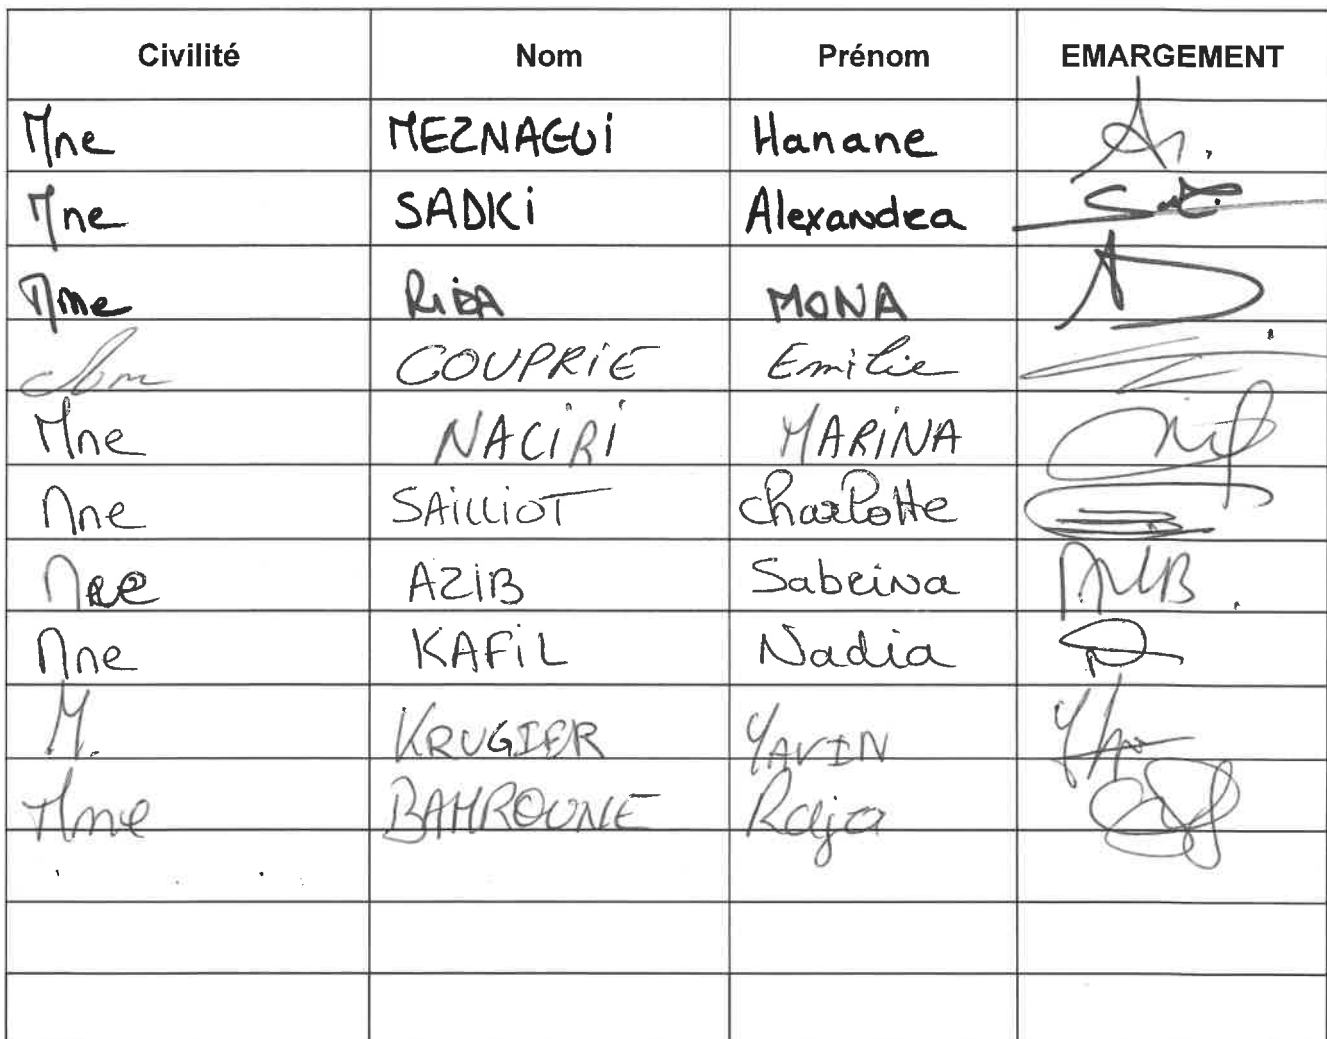 Civilité Nom Prénom EMARGEMENT
Mme MEZNAGUi Hanane
Mme SADKi Alexandra
Mme MONA
COUPRiE Emilie
Mme NACiRi MARiNA
Mme SAiLLiOT Charlotte
Mme AZIB Sabrina
Mme KAFiL Nadia
M. KRUGIER YAVIN
Mme BAHROUNE Raja